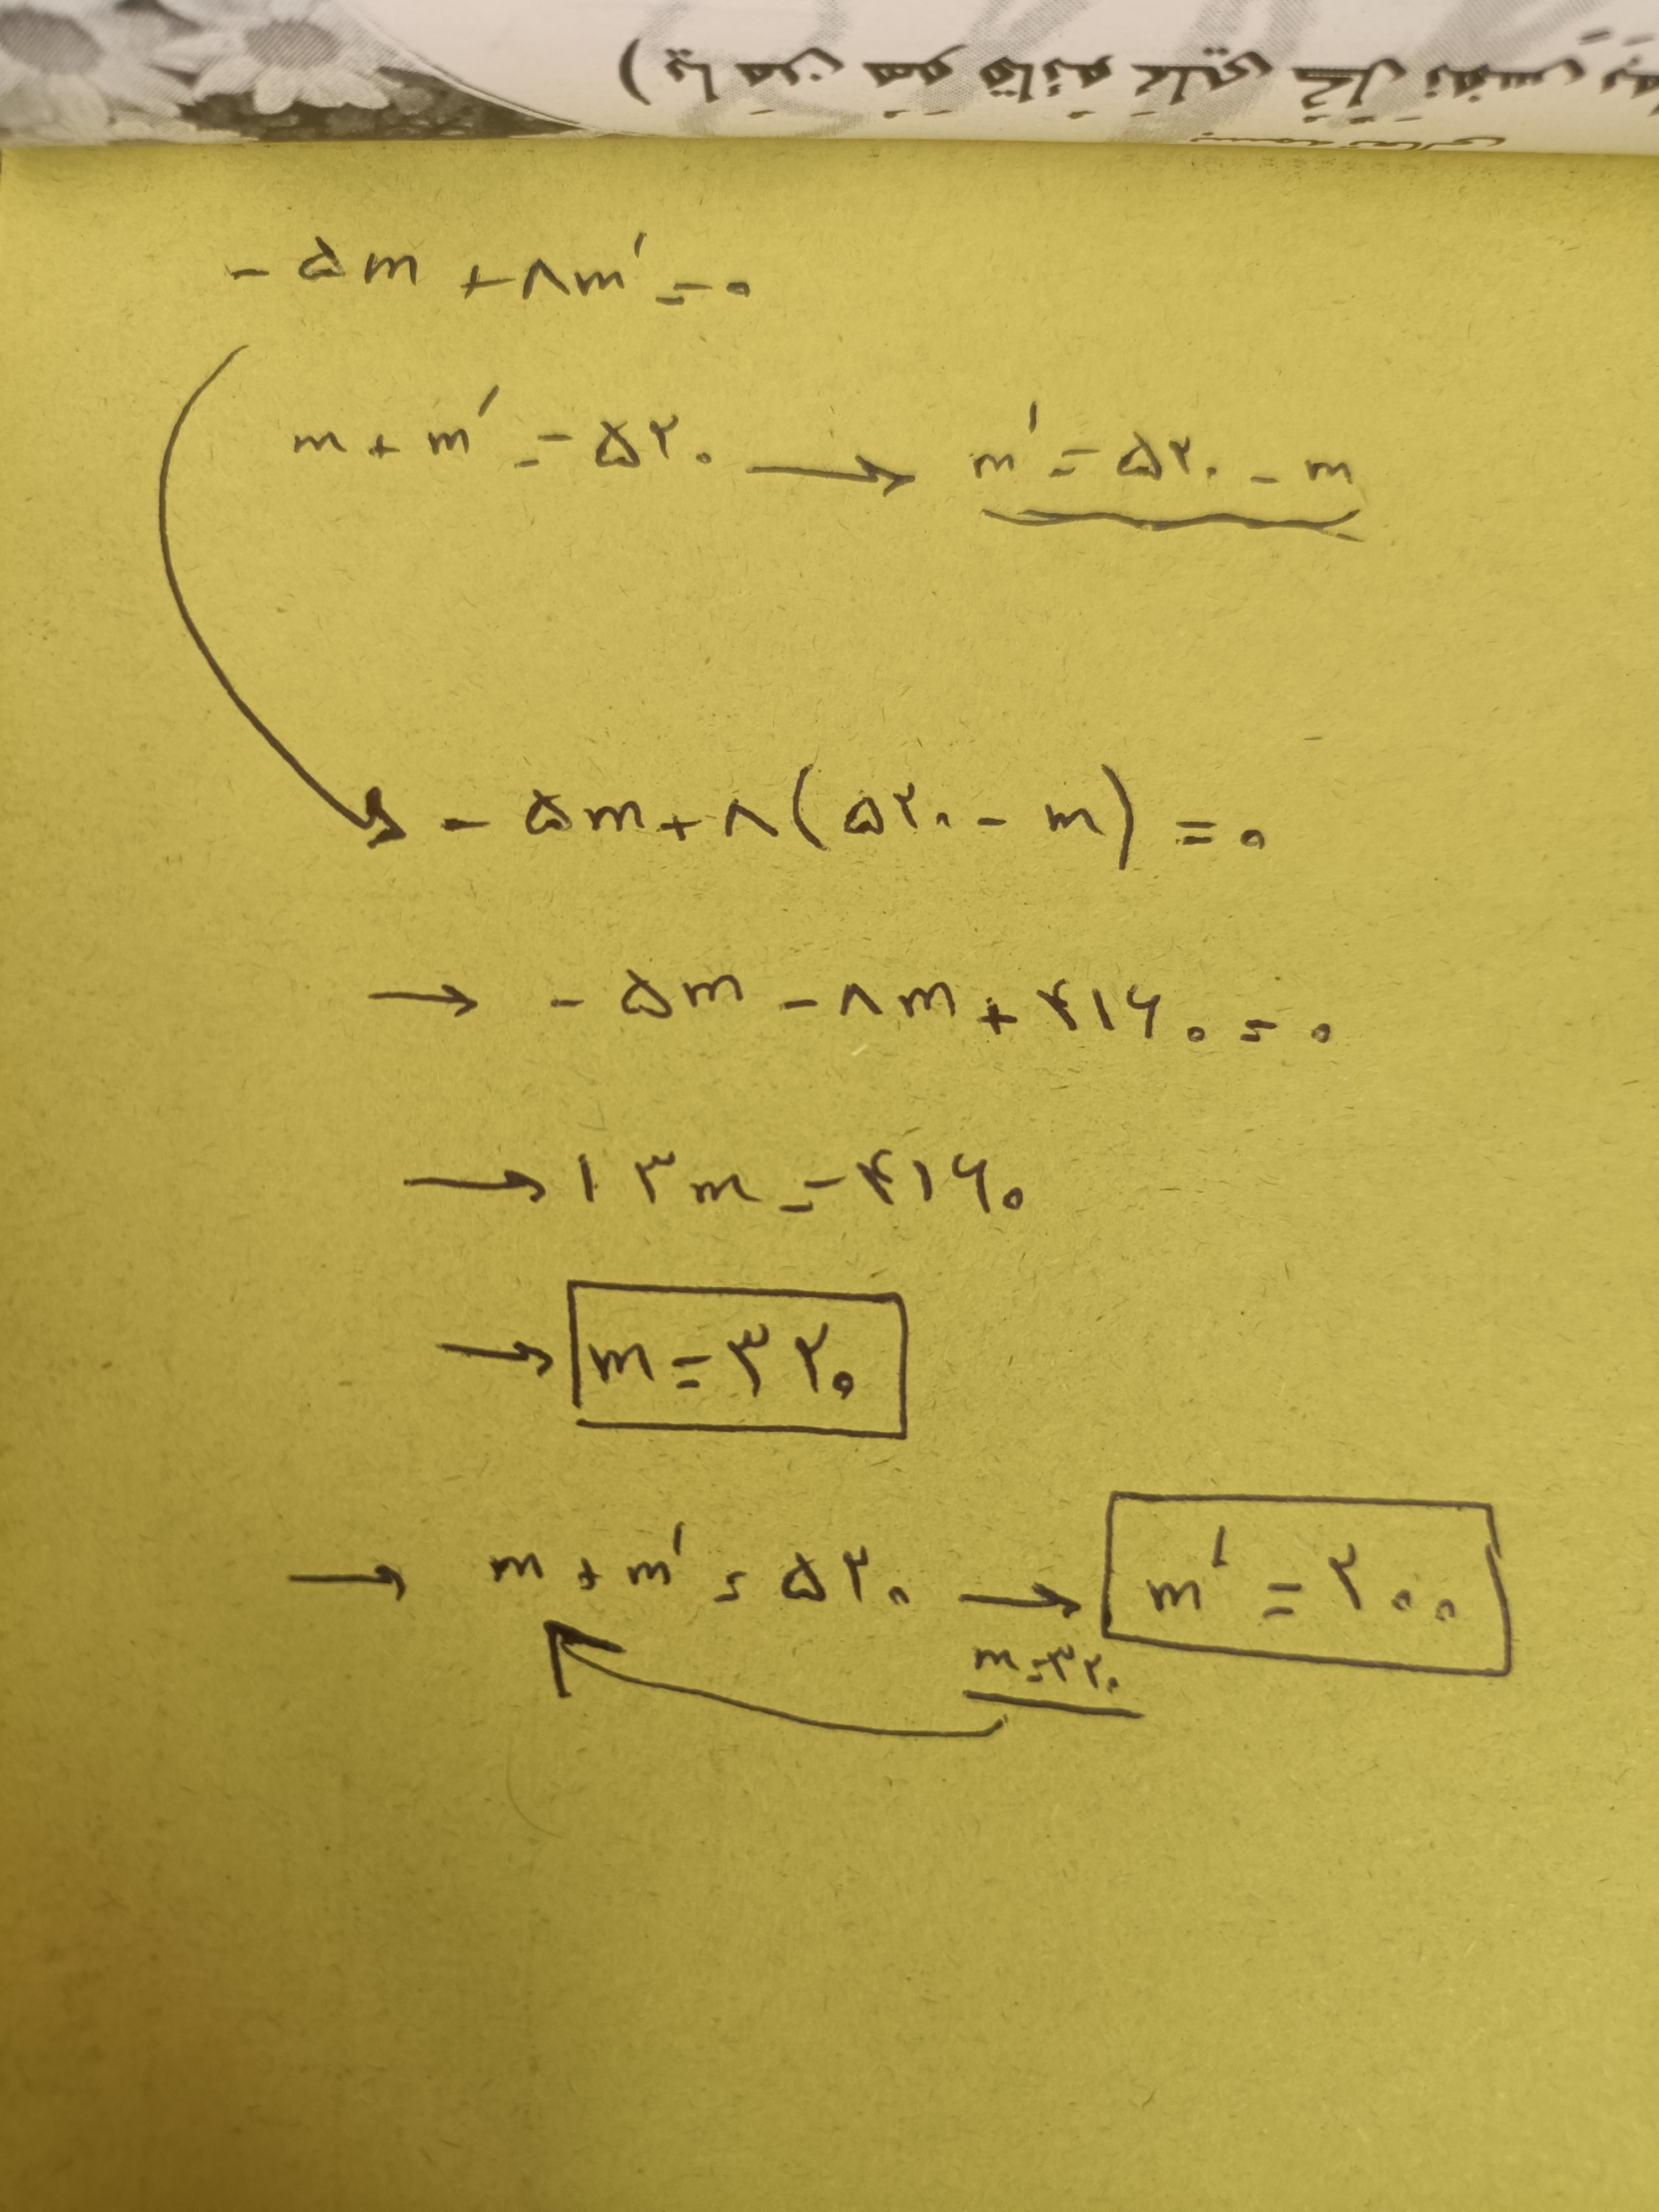 - ۵m + ۸m' = ۰
m + m' = ۵۲۰ → m' = ۵۲۰ - m
- ۵m + ۸(۵۲۰ - m) = ۰
→ - ۵m - ۸m + ۴۱۶۰ = ۰
→ ۱۳m = ۴۱۶۰
→ m = ۳۲۰
→ m + m' = ۵۲۰ → m' = ۲۰۰
m = ۳۲۰